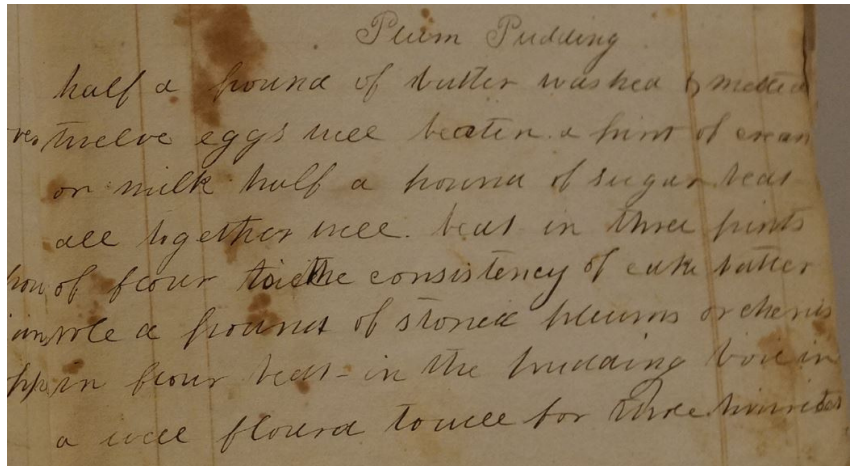 Plum Pudding
half a pound of butter washed & melted
twelve eggs well beaten a pint of cream
or milk half a pound of sugar beat
all together well. beat in three pints
of flour to the consistency of cake batter
role a pound of stoned plums or cheries
in flour beat in the pudding boil in
a well flourd towell for three hours